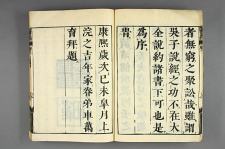 者無窮之聚訟哉雖謂
吳子說經之功不在大
全說約諸書下可也是
為序
旹
康熙歲次己未皐月上
浣之吉年家眷弟車萬
育拜題